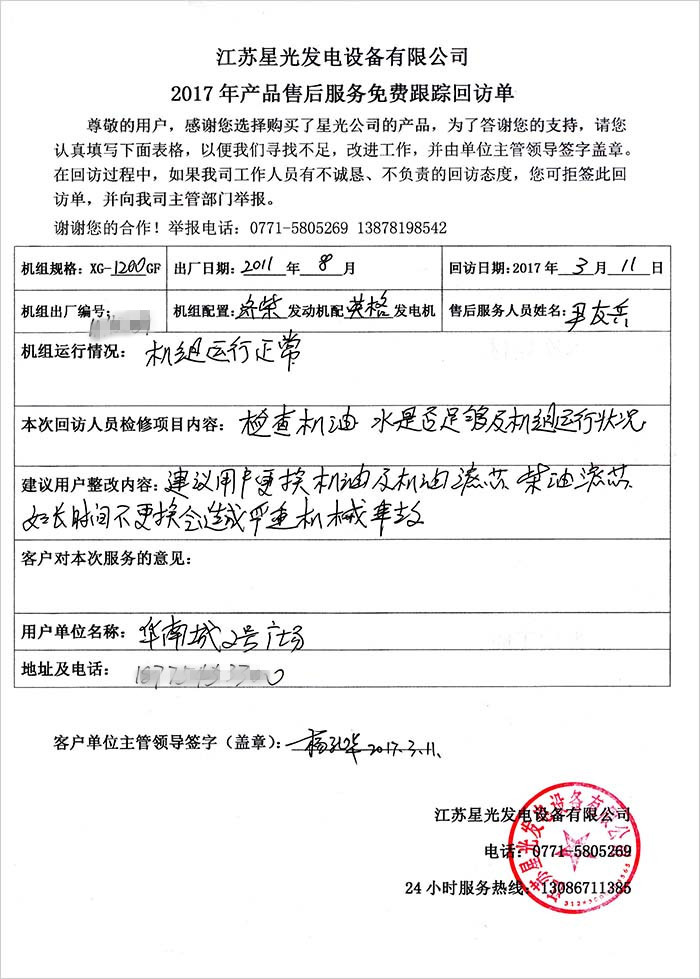 江苏星光发电设备有限公司
2017年产品售后服务免费跟踪回访单
尊敬的用户，感谢您选择购买了星光公司的产品，为了答谢您的支持，请您
认真填写下面表格，以便我们寻找不足，改进工作，并由单位主管领导签字盖章。
在回访过程中，如果我司工作人员有不诚恳、不负责的回访态度，您可拒签此回
访单，并向我司主管部门举报。
谢谢您的合作！举报电话：0771-5805269 13878198542
机组规格：XG-1200GF 出厂日期：2011 年 8 月 回访日期：2017 年 3 月 11 日
机组出厂编号： 机组配置：济柴 发动机配 英格 发电机 售后服务人员姓名：尹友兵
机组运行情况：机组运行正常
本次回访人员检修项目内容：检查机油 水是否足够及机组运行状况
建议用户整改内容：建议用户更换机油及机油滤芯 柴油滤芯
如长时间不更换会造成严重机械事故
客户对本次服务的意见：
用户单位名称：华南城2号广场
地址及电话：
客户单位主管领导签字（盖章）：2017.3.11.
江苏星光发电设备有限公司
电话：0771-5805269
24小时服务热线：13086711385
江苏星光发电设备有限公司